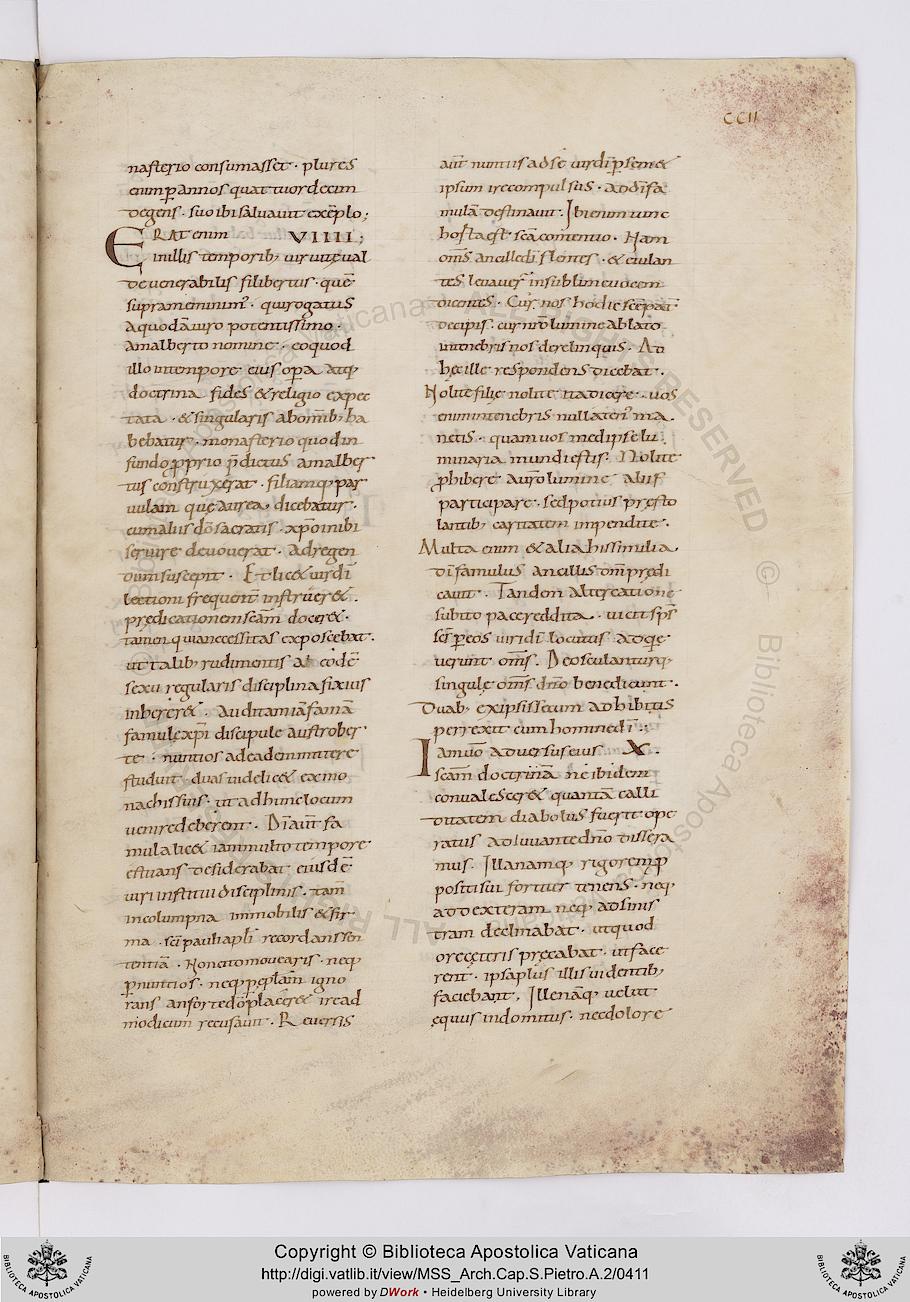 CCII
nasterio consumasset · plures
enim p̄ annos quattuordecim
degens · suo ibi salvavit exēplo ;
ERAT enim VIIII ;
in illis temporib; vir vitę val
de venerabilis filibertus · quē
supra meminim᾽ · qui rogatus
a quodā viro potentissimo ·
amalberto nomine · eo quod
illo in tempore eius opa atq;
doctrina fides & religio expec
tata · & singularis ab omīb; ha
bebatur · monasterio quod in
fundo ꝓprio p̄dictus amalber
tus construxerat · filiamq; par
vulam quę aurea dicebatur ·
cum aliis dō sacratis · xp̄o inibi
servire devoverat · ad regen
dum suscepit · Et lic& viridi
lectioni frequent̄ instruer& ·
prędicationem seām docer& ·
tamen quia necessitas exposcebat ·
ut talib; rudimentis ab eodē
sexu regularis disciplina fixius
inherer& · audita miā famā
famulę xp̄i discipule austrober
te · nuntios ad eadem mittere
studuit · duas videlic& ex mo
nachis suis · ut ad hunc locum
venire deberent · Dī aūt fa
mula lic& iam multo tempore
estuans desiderabat eiusdē
viri institui disciplinis · tam̄
in columpna immobilis & fir
ma · sc̄i pauli apl̄i recordans sen
tentiā · Non cito moveāris · neq;
p̄ nuntios · neq; p̄ epl̄am igno
rans an forte dō̄ placer& ire ad
modicum recusavit · Reversis
aūt nuntiis ad se viridi p̄ sem&
ipsum ire compulsus · ad dī fa
mulā destinavit · Ibi enim tunc
hosta est · sēā conventio · Nam
om̄s ancille dī flentes · & eiulan
tes levaver̄ in sublime vocem
dicentes · Cur nos hodie sc̄e pat̄
decipis · cur nr̄o lumine ablato
in tenebris nos derelinquis · Ad
hęc ille respondens dicebat ·
Nolite filię nolite ita dicere · vos
enim in tenebris nullaten᾽ ma
netis · quam vos medipse lu
minaria mundi estis · Nolite
ꝓhibere a vr̄o lumine aliis
participare · sed potius pręsto
lantib; caritatem impendite ·
Multa enim & alia his similia
dī famulus ancillis om̄p̄ predi
cavit · Tandem altercatione
subito pace reddita · vicit sp̄s
sc̄s p̄ eos viridī locutus adqe
verunt om̄s · Deosculanturq;
singulę om̄s dn̄o benedicunt ·
Duab; ex ipsis secum adhibitis
perrexit cum homine dī ·:
Iam vēo adversus eius X.
scām doctrinā ne ibidem
convalescer& quantā calli
ditatem diabolus fuerit ope
ratus adiuvante dn̄o dissera
mus · Illa namq; rigorem p̄
positi sui fortiter tenens · neq;
ad dexteram neq; ad sinis
tram declinabat · ut quod
ore cęteris pręcabat · ut face
rent · ipsa pl̄us illis videntib;
faciebant · Ille nāq; velut
equus indomitus · nec dolore
Copyright © Biblioteca Apostolica Vaticana
http://digi.vatlib.it/view/MSS_Arch.Cap.S.Pietro.A.2/0411
powered by DWork • Heidelberg University Library